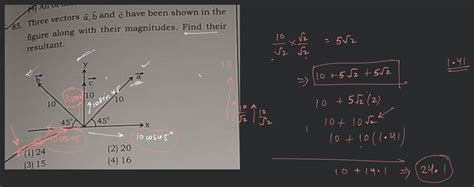 85. Three vectors a, b and c have been shown in the
figure along with their magnitudes. Find their
resultant.
y
b
c
a
10
10
10
10 sin 45
45°
45°
x
10 cos 45
10 cos 45
(1) 24
(2) 20
(3) 15
(4) 16
10
10/√2
10/√2
10/√2 × √2/√2 = 5√2
1.41
⇒ 10 + 5√2 + 5√2
10 + 5√2 (2)
10 + 10√2
10 + 10(1.41)
10 + 14.1 ⇒ 24.1